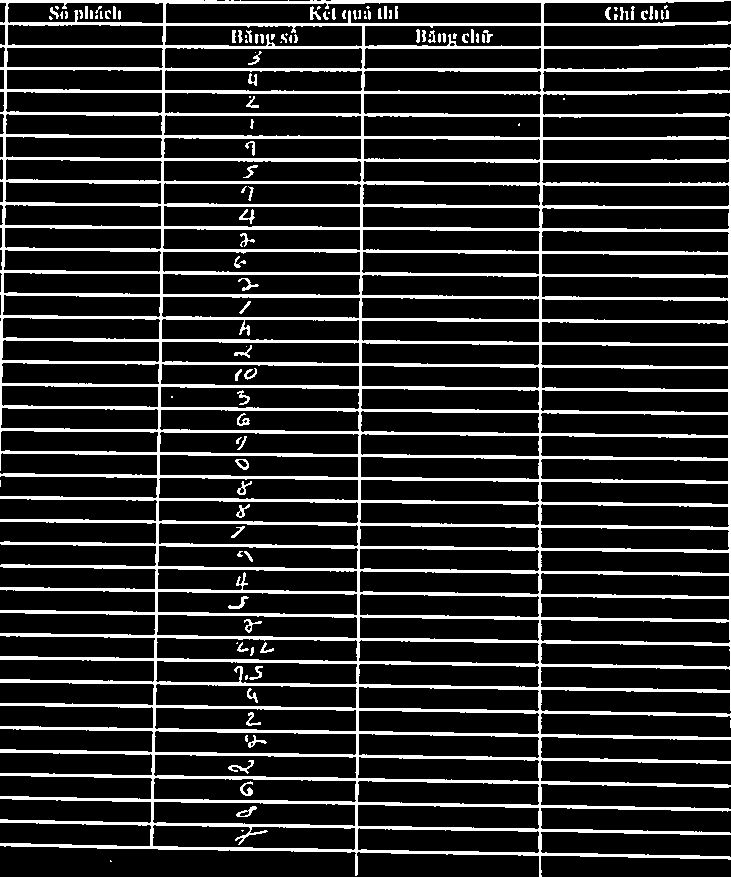 Số phách Kết quả thi Ghi chú
Bằng số Bằng chữ
3
4
2
1
9
5
9
4
2
6
2
1
4
2
10
3
6
9
0
8
8
7
4
5
2
2,2
9,5
9
2
2
2
6
8
7